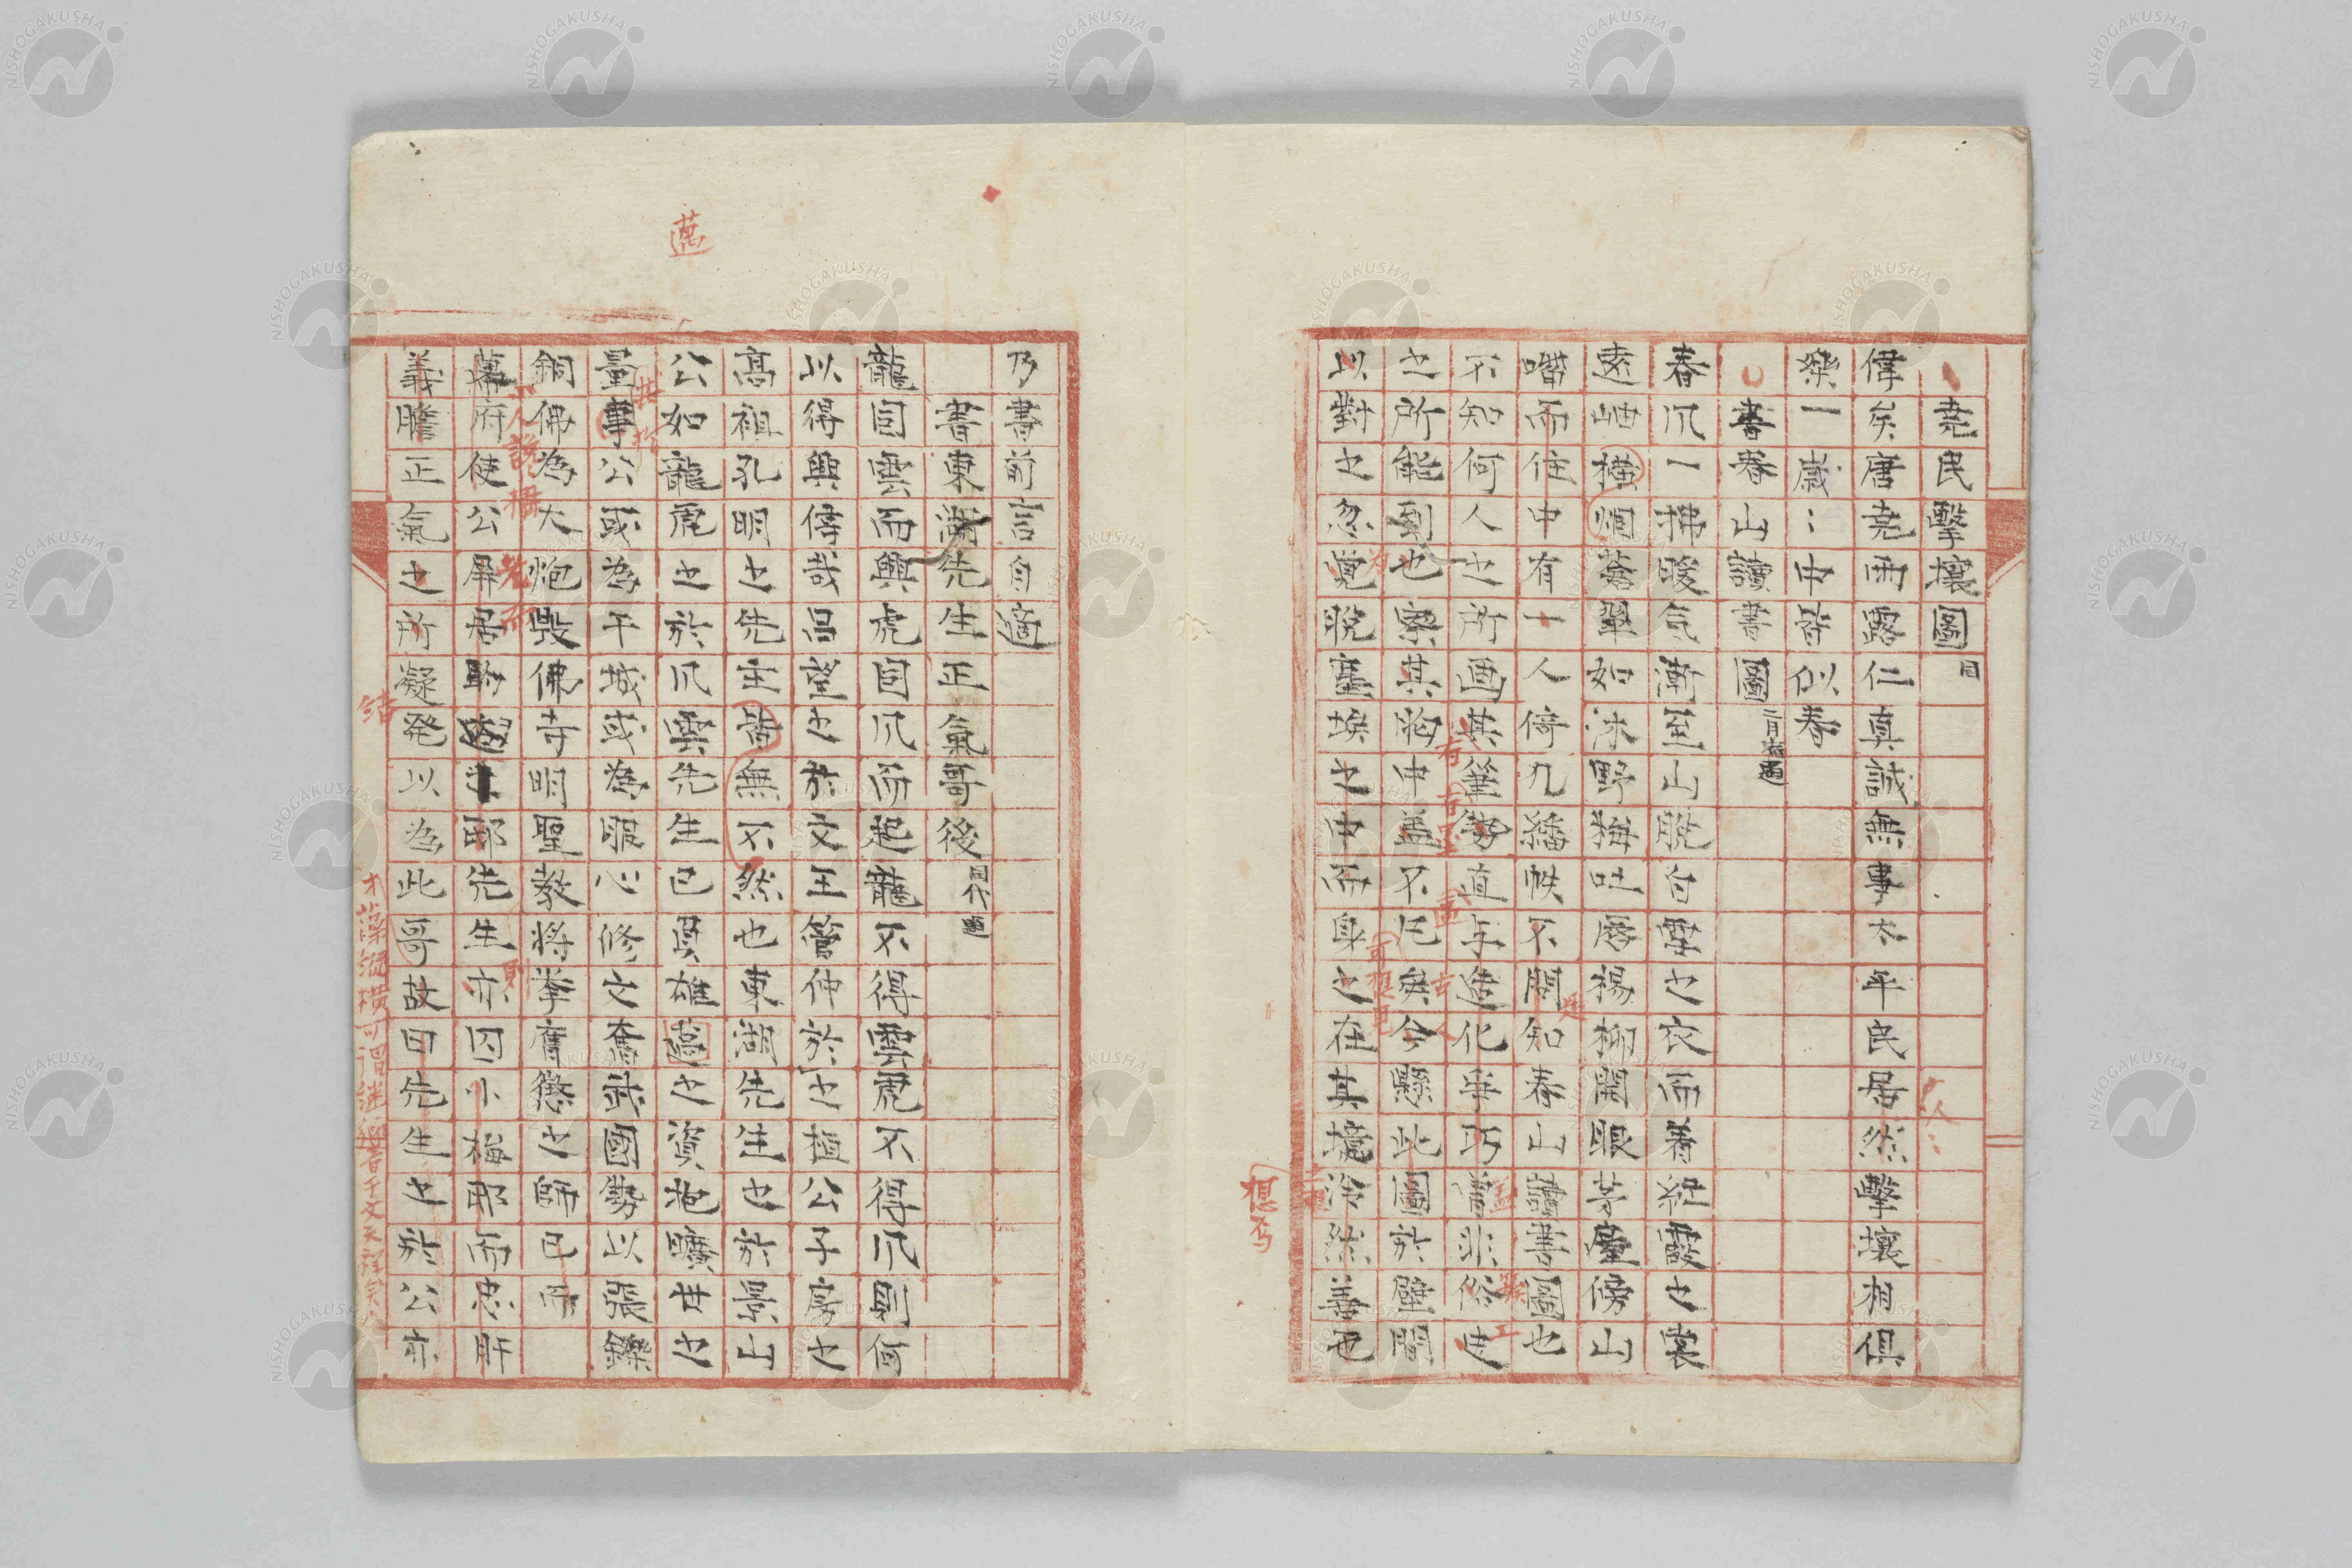 堯民擊壤圖 同
偉矣唐堯雨露仁真誠無事太平民居然擊壤相倶
樂一歳〻中皆似春
書春山讀書圖
春爪一拂暖気漸至山脱白雲之衣而着紅霞之裳
遠岫横烟蒼翠如沐野梅吐唇楊柳開眼茅廬傍山
嘴而住中有一人倚几繙帙不問知春山讀書圖也
不知何人之所画其筆勢直与造化爭巧曽非俗史
之所能到也察其胸中盖不凡矣今懸此圖於壁間
以對之忽覚脱塵埃之中而身之在其境浛然善也
乃書前言自適
書東湖先生正氣哥後
龍因雲而興虎因爪而起龍不得雲虎不得爪則何
以得興偉哉呂望之於文王管仲於之桓公子房之
高祖孔明之先主皆無不然也東湖先生之於景山
公如龍虎之於爪雲先生已負雄高之資抱曠世之
量事公或為干城或為服心修文奮武國勢以張鑠
銅佛為大炮毀佛寺明聖教将挙膺懲之師已而
幕府使公屏居耶先生亦囚小梅耶而忠肝
義膽正氣之所凝発以為此哥故曰先生之於公亦
邁
結
想否
才藻縱横可謂